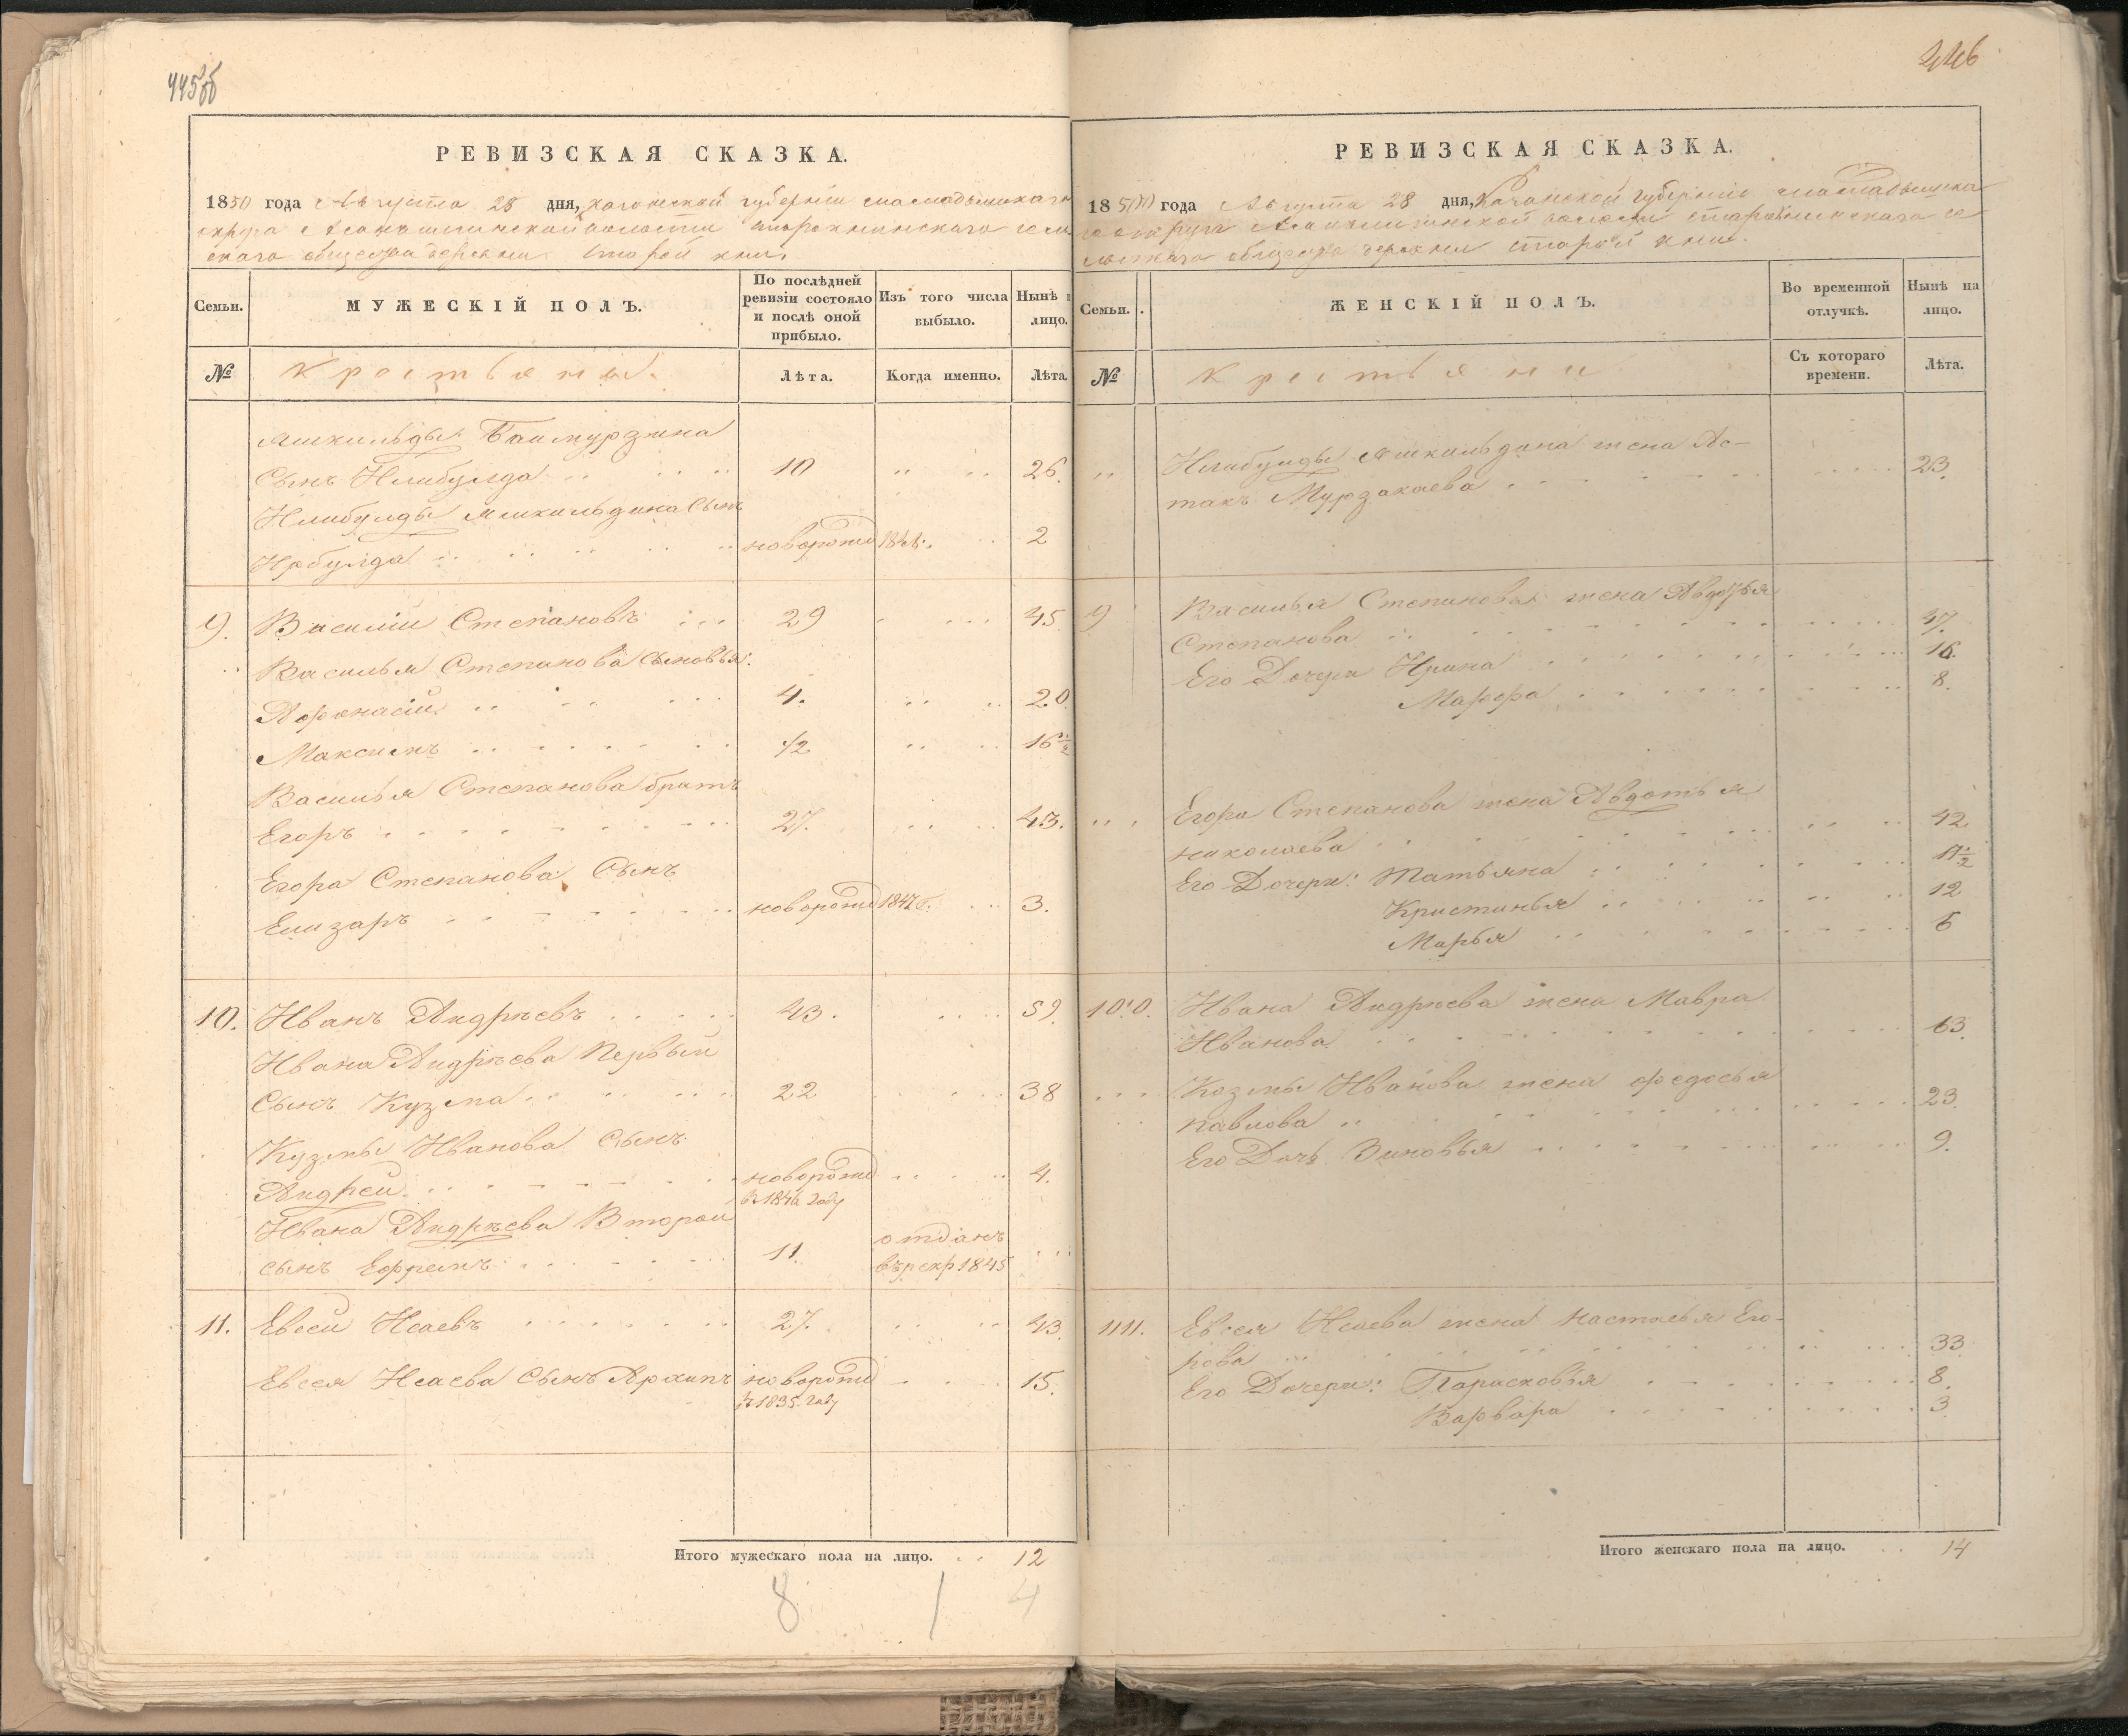 445об
РЕВИЗСКАЯ СКАЗКА.
1850 года Августа 28 дня, казанской губерніи мамадышскаго
округа волости старокнинскаго сель
скаго общества деревни Старой кни.
Семьи.
МУЖЕСКІЙ ПОЛЪ.
По послѣдней ревизіи состояло и послѣ оной прибыло.
Изъ того числа выбыло.
Нынѣ на лицо.
№
Крестьяне.
Лѣта.
Когда именно.
Лѣта.
Ямкильды Баимурзина
Сынъ Илибулда 10 26.
Илибулды Ямкильдина Сынъ
Ирбулда новорожд 2
9. Василіи Степановъ 29 45
Василья Степанова сыновья:
Афонасіи 4. 20
Максимъ 1/2 16 1/2
Василья Степанова братъ
Егоръ 27. 43.
Егора Степанова Сынъ
Елизаръ новорожд 1847 3.
10. Иванъ Андрѣевъ 43. 59
Ивана Андрѣева Первыи
Сынъ Кузма 22 38
Кузмы Иванова Сынъ
Андреи новорожд 4.
в 1846 году
Ивана Андрѣева Второи
сынъ Ефремъ 11. отданъ
въ рекр 1845
11. Евсеи Исаевъ 27. 43.
Евсея Исаева Сынъ Архипъ новорожд 15.
в 1835 году
Итого мужескаго пола на лицо. 12
8 1 4
446
РЕВИЗСКАЯ СКАЗКА.
1850 года Августа 28 дня, Казанской губерніи мамадышска
го округа волости старокнинскаго се
льскаго общества деревни старой кни.
Семьи.
ЖЕНСКІЙ ПОЛЪ.
Во временной отлучкѣ.
Нынѣ на лицо.
№
Крестьяне
Съ котораго времени.
Лѣта.
Илибулды Ямкильдина жена Ас-
такъ Мурзакаева 23.
9 Василья Степанова жена Авдотья
Степанова 47.
Его Дочери Ирина 16.
Марфа 8.
Егора Степанова жена Авдотья
николаева 42.
Его Дочери: Татьяна
Кристинья 12
Марья 6
10. Ивана Андрѣева жена Мавра
Иванова 63.
Козмы Иванова жена федосья
павлова 23.
Его Дочь Зиновья 9.
11. Евсея Исаева жена настасья Его-
рова 33
Его Дочери: Парасковья 8.
Варвара 3
Итого женскаго пола на лицо. 14